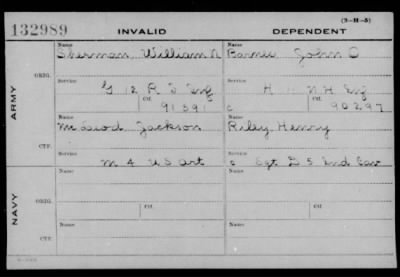 (3-H-5)
132989 INVALID DEPENDENT
Name Name
Sherman, William N Barnes John O
ORIG.
Service Service
G 12 R I Inf H 11 N H Inf
Ctf. Ctf.
91591 C 90297
ARMY
Name Name
McLeod Jackson Riley Henry
CTF.
Service Service
M 4 US Art C Sgt D 5 Ind Cav
Name Name
ORIG.
Service Service
Ctf. Ctf.
NAVY
Name Name
CTF.
Service Service